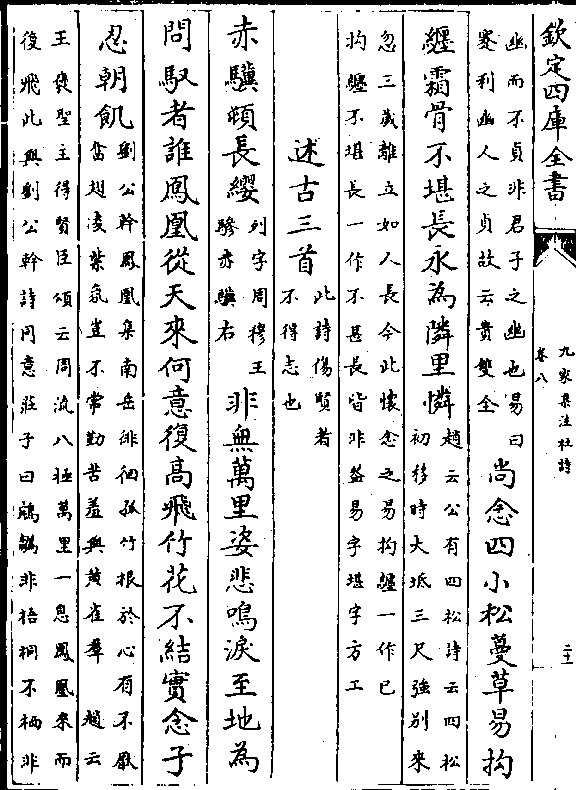 欽定四庫全書
九家集注杜詩
卷八
二十
幽而不貞非君子之幽也易曰
蹇利幽人之貞故云貴雙全
尚念四小松蔓草易拘
纒霜骨不堪長永為隣里憐
趙云公有四松詩云四松
初移時大坻三尺強別來
忽三歳離立如人長今此懷念之易拘纒一作已
拘纒不堪長一作不甚長皆非盖易字堪字方工
述古三首
此詩傷賢者
不得志也
赤驥頓長纓
列字周穆王
驂赤驥右
非無萬里姿悲鳴淚至地為
問馭者誰鳳凰從天來何意復髙飛竹花不結實念子
忍朝飢
劉公幹鳳凰集南岳徘徊孤竹根於心有不厭
奮翅凌紫氛豈不常勤苦羞與黄雀羣　趙云
王襃聖主得賢臣頌云周流八極萬里一息鳳凰來而
復飛此與劉公幹詩同意莊子曰鵷鶵非梧桐不栖非